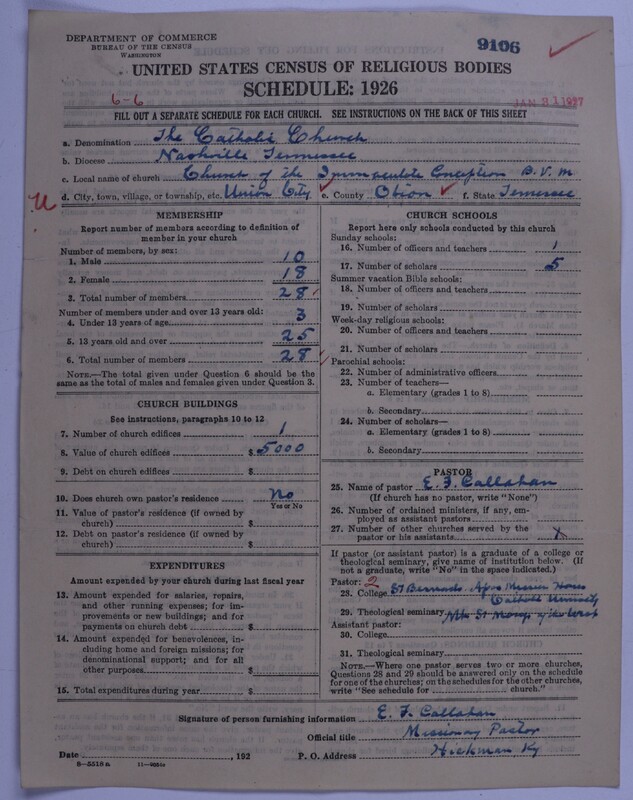 DEPARTMENT OF COMMERCE
BUREAU OF THE CENSUS
WASHINGTON
9106
UNITED STATES CENSUS OF RELIGIOUS BODIES
SCHEDULE: 1926
6-6
JAN 21 1927
FILL OUT A SEPARATE SCHEDULE FOR EACH CHURCH. SEE INSTRUCTIONS ON THE BACK OF THIS SHEET
a. Denomination The Catholic Church
b. Diocese Nashville Tennessee
c. Local name of church Church of the Immaculate Conception B.V.M
d. City, town, village, or township, etc. Union City e. County Obion f. State Tennessee
MEMBERSHIP
Report number of members according to definition of
member in your church
Number of members, by sex:
1. Male 10
2. Female 18
3. Total number of members 28
Number of members under and over 13 years old:
4. Under 13 years of age 3
5. 13 years old and over 25
6. Total number of members 28
NOTE.—The total given under Question 6 should be the
same as the total of males and females given under Question 3.
CHURCH BUILDINGS
See instructions, paragraphs 10 to 12
7. Number of church edifices 1
8. Value of church edifices $ 5000
9. Debt on church edifices $
10. Does church own pastor's residence No
Yes or No
11. Value of pastor's residence (if owned by
church) $
12. Debt on pastor's residence (if owned by
church) $
EXPENDITURES
Amount expended by your church during last fiscal year
13. Amount expended for salaries, repairs,
and other running expenses; for im-
provements or new building; and for
payments on church debt $
14. Amount expended for benevolences, in-
cluding home and foreign missions; for
denominational support; and for all
other purposes $
15. Total expenditures during year $
CHURCH SCHOOLS
Report here only schools conducted by this church
Sunday schools:
16. Number of officers and teachers 1
17. Number of scholars 5
Summer vacation Bible schools:
18. Number of officers and teachers
19. Number of scholars
Week-day religious schools:
20. Number of officers and teachers
21. Number of scholars
Parochial schools:
22. Number of administrative officers
23. Number of teachers—
a. Elementary (grades 1 to 8)
b. Secondary
24. Number of scholars—
a. Elementary (grades 1 to 8)
b. Secondary
PASTOR
25. Name of pastor E. F. Callahan
(If church has no pastor, write "None")
26. Number of ordained ministers, if any, em-
ployed as assistant pastors
27. Number of other churches served by the
pastor or his assistants
If pastor (or assistant pastor) is a graduate of a college or
theological seminary, give name of institution below. (If
not a graduate, write "No" in the space indicated.)
Pastor: 2
28. College St Mission House
Catholic University
29. Theological seminary Mt St of the West
Assistant pastor:
30. College
31. Theological seminary
NOTE.—Where one pastor serves two or more churches,
Questions 28 and 29 should be answered only on the schedule
for one of the churches; on the schedules for the other churches,
write "See schedule for church."
Signature of person furnishing information E. F. Callahan
Official title Missionary Pastor
Date , 192 P. O. Address Hickman, Ky